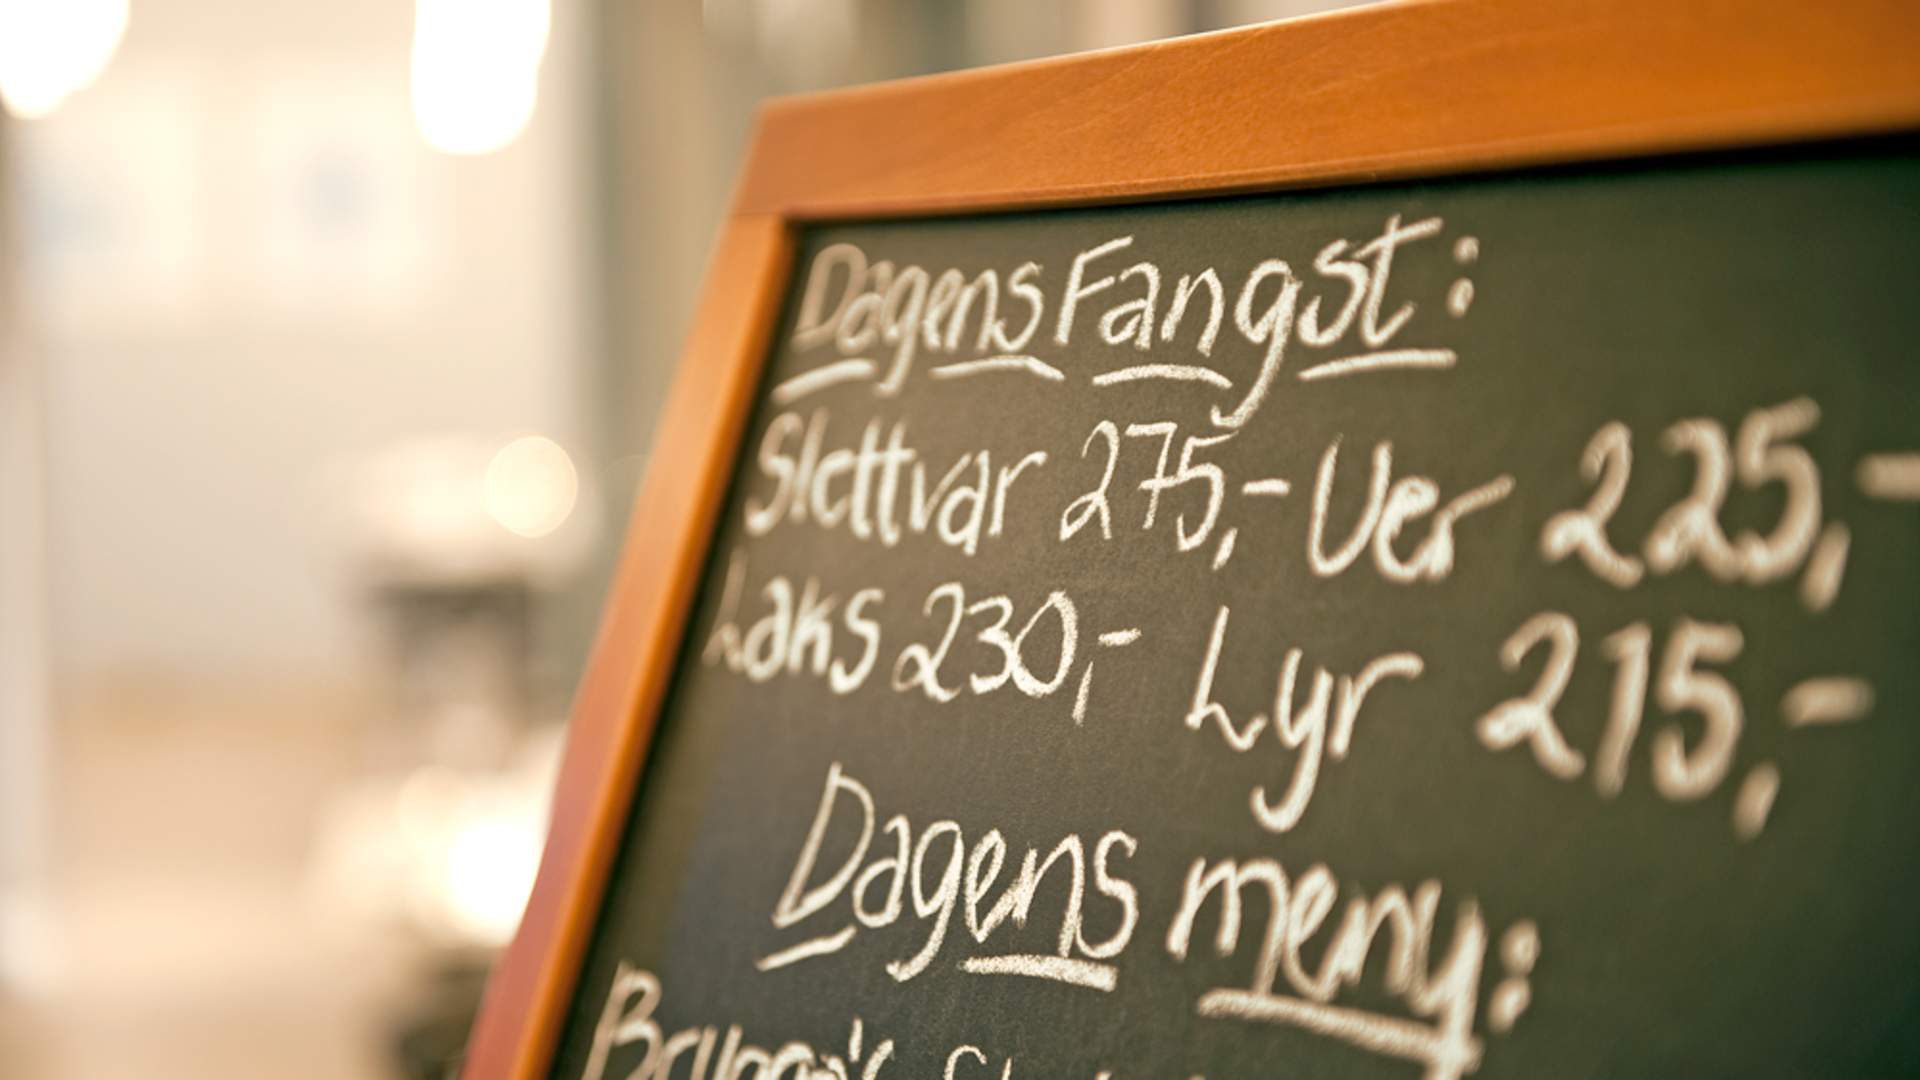 Dagens Fangst:
Slettvar 275,- Uer 225,-
Laks 230,- Lyr 215,-
Dagens meny: